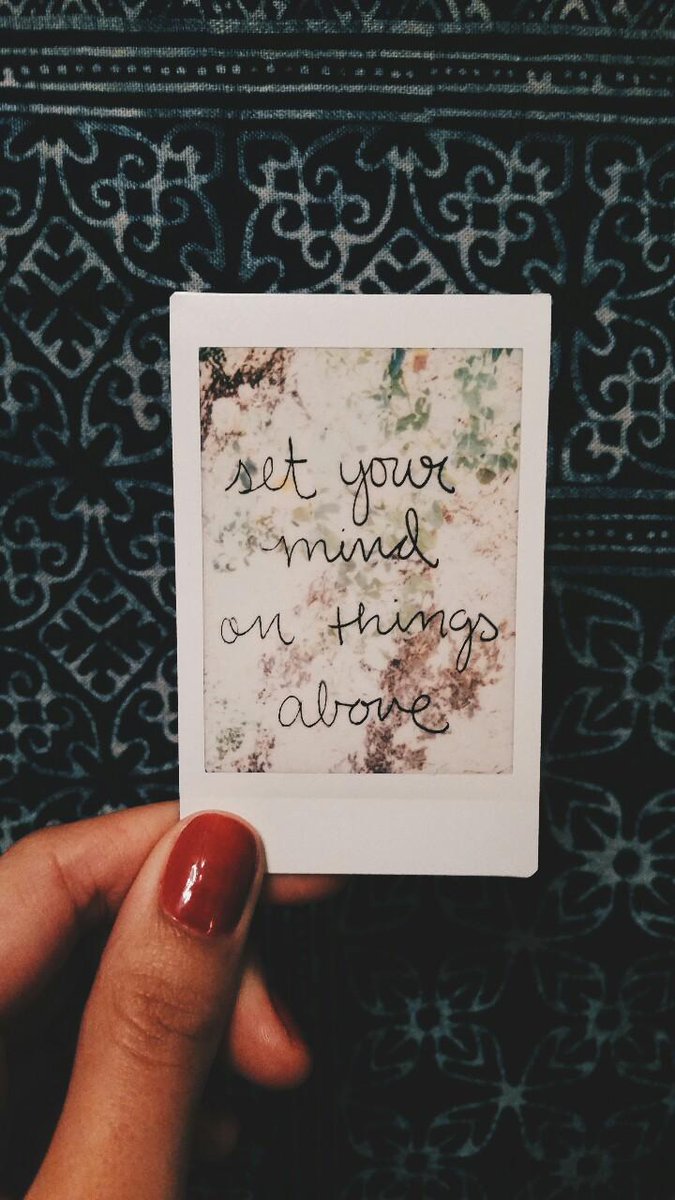 set your
mind
on things
above